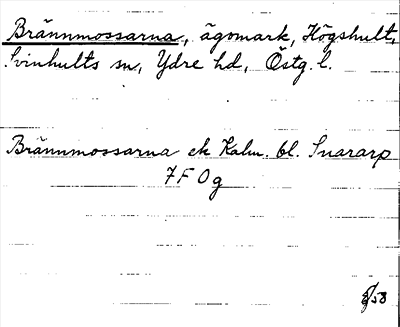 Brännmossarna, ägomark, Högshult,
Svinhults sn, Ydre hd, Östg. l.
Brännmossarna ek Kalm. bl. Snararp
7F 0g